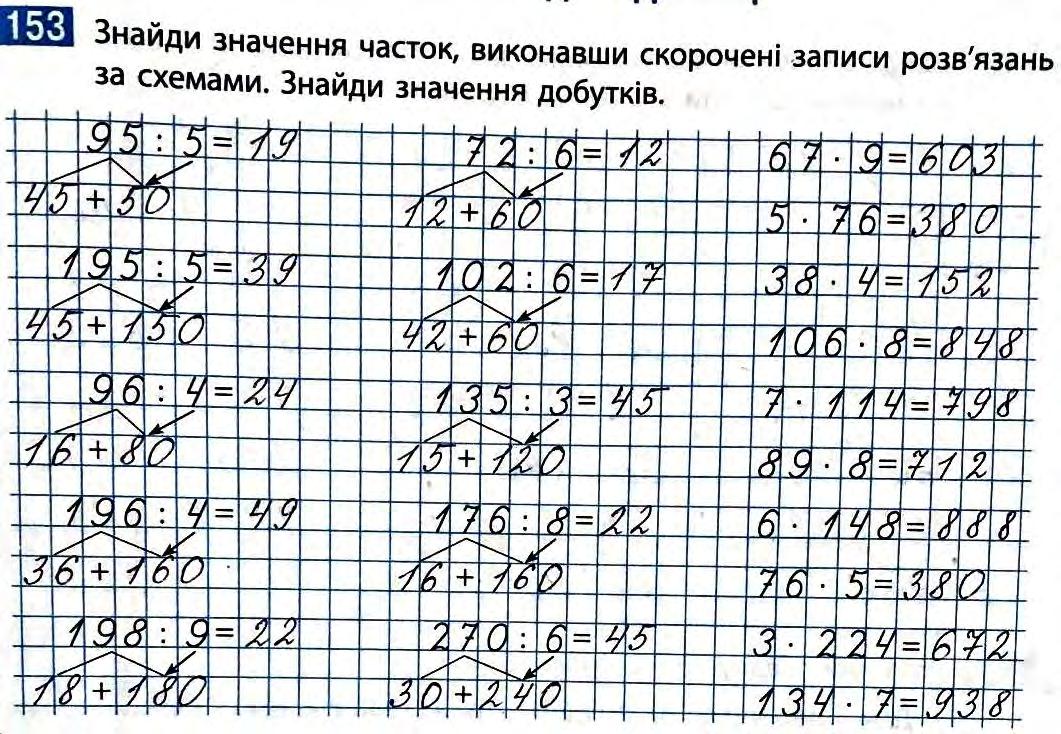 153 Знайди значення часток, виконавши скорочені записи розв'язань
за схемами. Знайди значення добутків.
95 : 5 = 19
45 + 50
195 : 5 = 39
45 + 150
96 : 4 = 24
16 + 80
196 : 4 = 49
36 + 160
198 : 9 = 22
18 + 180
72 : 6 = 12
12 + 60
102 : 6 = 17
42 + 60
135 : 3 = 45
15 + 120
176 : 8 = 22
16 + 160
270 : 6 = 45
30 + 240
67 · 9 = 603
5 · 76 = 380
38 · 4 = 152
106 · 8 = 848
7 · 114 = 798
89 · 8 = 712
6 · 148 = 888
76 · 5 = 380
3 · 224 = 672
134 · 7 = 938